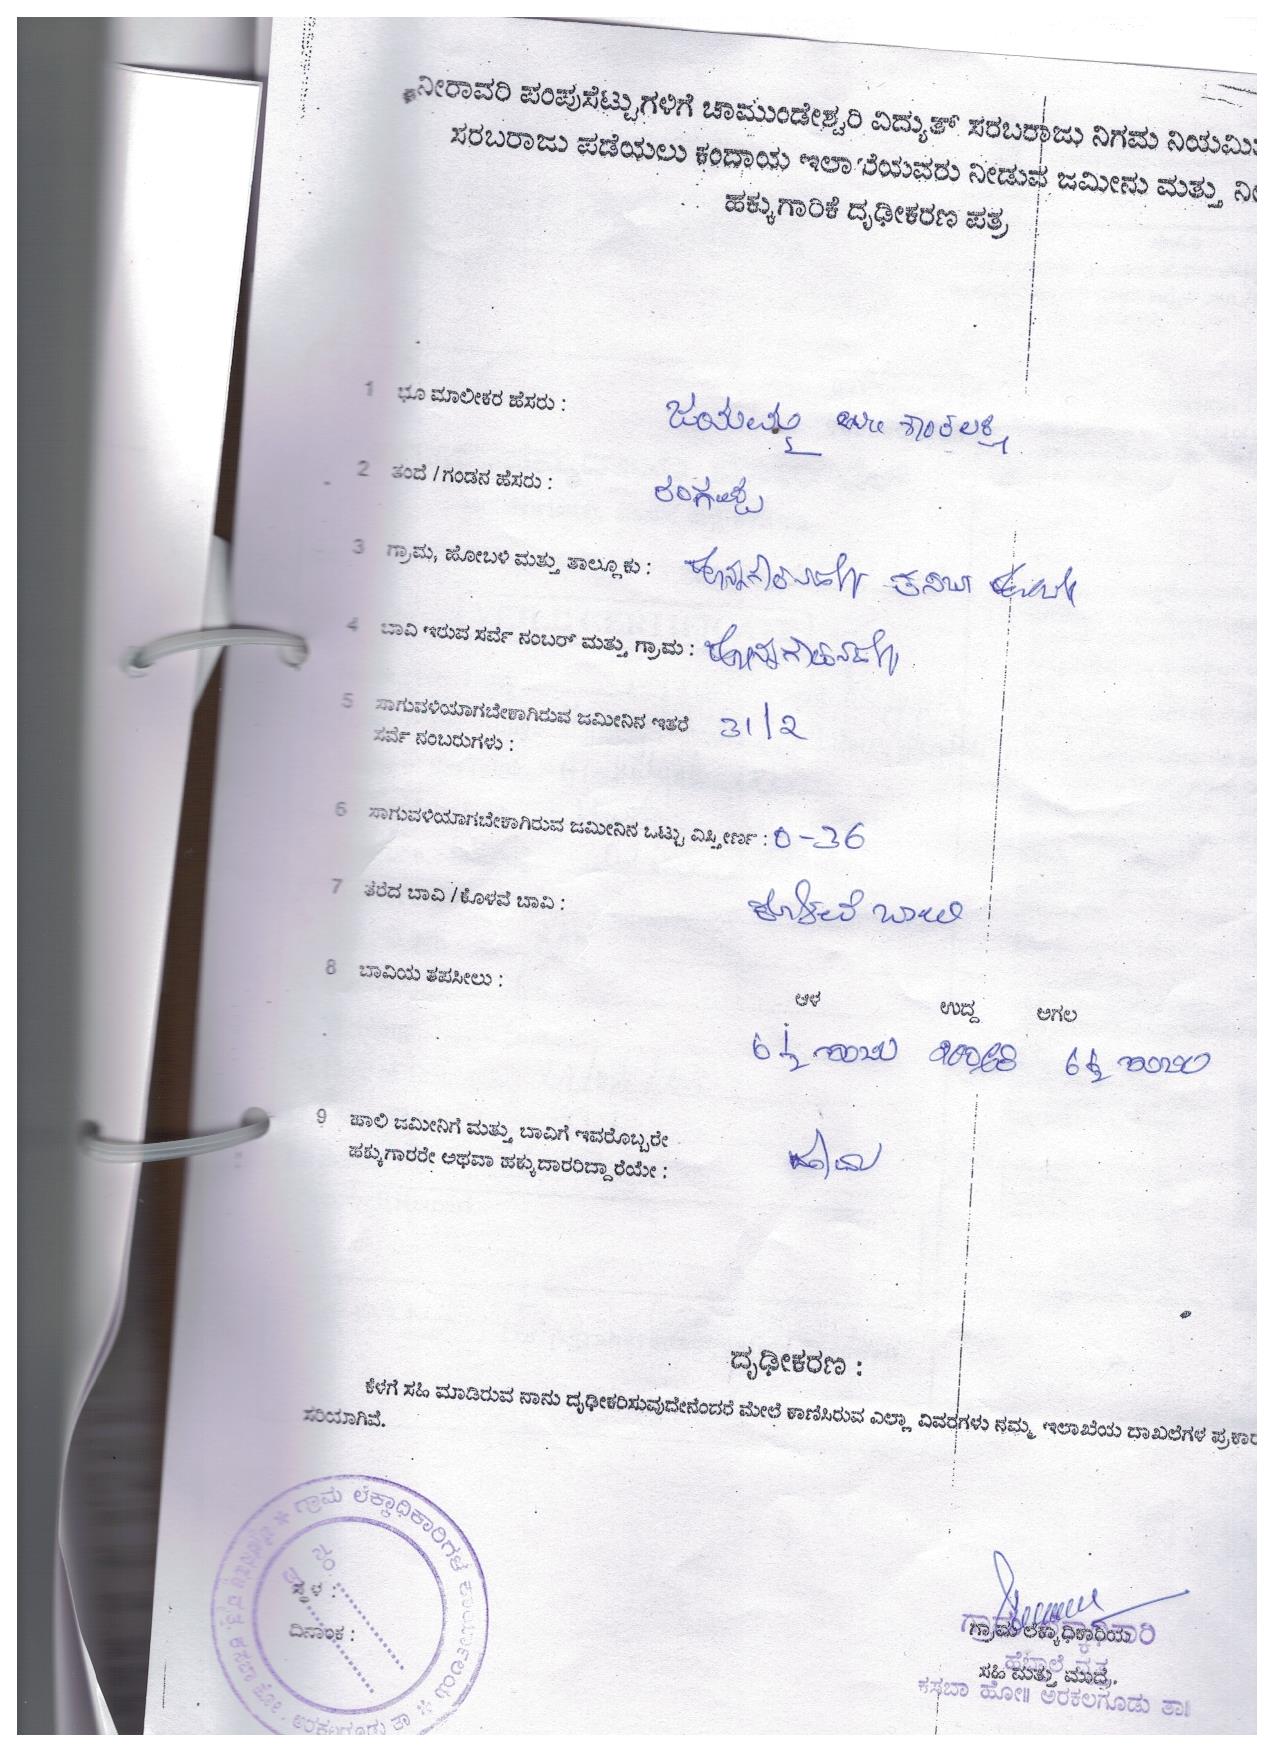 ನೀರಾವರಿ ಪಂಪುಸೆಟ್ಟುಗಳಿಗೆ ಚಾಮುಂಡೇಶ್ವರಿ ವಿದ್ಯುತ್ ಸರಬರಾಜು ನಿಗಮ
ಸರಬರಾಜು ಪಡೆಯಲು ಕಂದಾಯ ನೀಡುವ ಜಮೀನು ಮತ್ತು
ಹಕ್ಕುಗಾರಿಕೆ ದೃಢೀಕರಣ ಪತ್ರ
1 ಭೂ ಮಾಲೀಕರ ಹೆಸರು : ಜಯಮ್ಮ
2 ತಂದೆ / ಗಂಡನ ಹೆಸರು :
3 ಗ್ರಾಮ, ಹೋಬಳಿ ಮತ್ತು ತಾಲ್ಲೂಕು :
4 ಬಾವಿ ಇರುವ ಸರ್ವೆ ನಂಬರ್ ಮತ್ತು ಗ್ರಾಮ :
5 ಸಾಗುವಳಿಯಾಗಬೇಕಾಗಿರುವ ಜಮೀನಿನ ಇತರೆ 31/2
ಸರ್ವೆ ನಂಬರುಗಳು :
6 ಸಾಗುವಳಿಯಾಗಬೇಕಾಗಿರುವ ಜಮೀನಿನ ಒಟ್ಟು ವಿಸ್ತೀರ್ಣ : 0-36
7 ತೆರೆದ ಬಾವಿ / ಕೊಳವೆ ಬಾವಿ : ಕೊಳವೆ ಬಾವಿ
8 ಬಾವಿಯ ತಪಸೀಲು :
ಆಳ ಉದ್ದ ಅಗಲ
6½ 6½
9 ಹಾಲಿ ಜಮೀನಿಗೆ ಮತ್ತು ಬಾವಿಗೆ ಇವರೊಬ್ಬರೇ
ಹಕ್ಕುಗಾರರೇ ಅಥವಾ ಹಕ್ಕುದಾರರಿದ್ದಾರೆಯೇ :
ದೃಢೀಕರಣ :
ಕೆಳಗೆ ಸಹಿ ಮಾಡಿರುವ ನಾನು ದೃಢೀಕರಿಸುವುದೇನೆಂದರೆ ಮೇಲೆ ಕಾಣಿಸಿರುವ ಎಲ್ಲಾ ವಿವರಗಳು ನಮ್ಮ ಇಲಾಖೆಯ ದಾಖಲೆಗಳ ಪ್ರಕಾರ
ಸರಿಯಾಗಿವೆ.
ಗ್ರಾಮ ಲೆಕ್ಕಾಧಿಕಾರಿಗಳ ಕಾರ್ಯಾಲಯ
ಅರಕಲಗೂಡು ತಾ
ನಂ
ಸ್ಥಳ :
ದಿನಾಂಕ :
ಗ್ರಾಮ ಲೆಕ್ಕಾಧಿಕಾರಿ
ಗ್ರಾಮ ಲೆಕ್ಕಾಧಿಕಾರಿಯ
ಹೆಬ್ಬಾಲೆ ವೃತ್ತ
ಸಹಿ ಮತ್ತು ಮುದ್ರೆ.
ಕಸಬಾ ಹೋ॥ ಅರಕಲಗೂಡು ತಾ॥